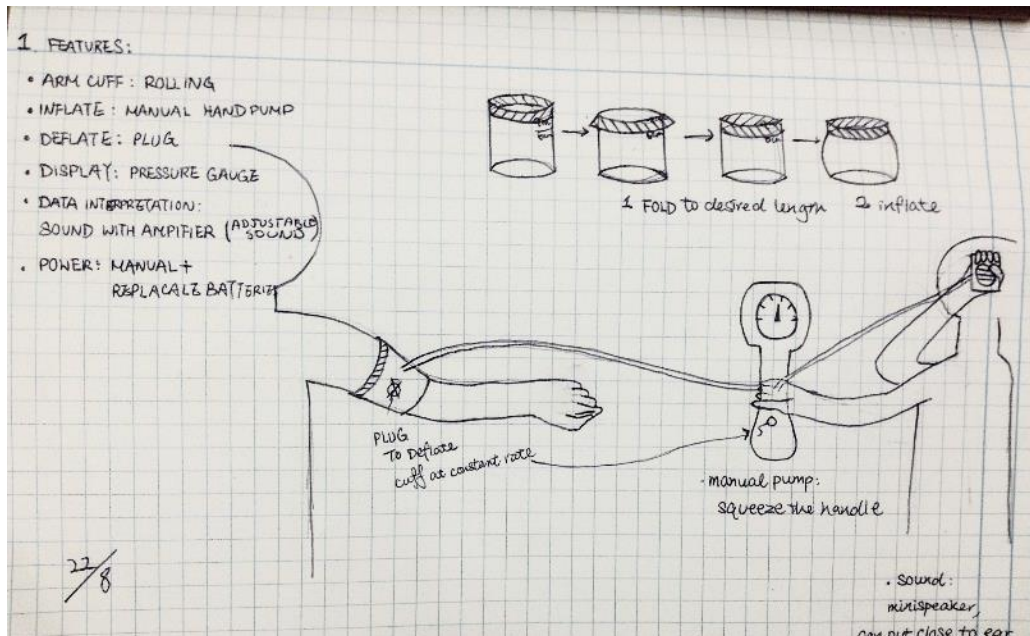 1 FEATURES:
• ARM CUFF: ROLLING
• INFLATE: MANUAL HAND PUMP
• DEFLATE: PLUG
• DISPLAY: PRESSURE GAUGE
• DATA INTERPRETATION:
SOUND WITH AMPIFIER (ADJUSTABLE
SOUND)
• POWER: MANUAL +
REPLACALE BATTERIES
1 FOLD to desired length
2 inflate
PLUG
TO Deflate
cuff at constant rate
• manual pump:
squeeze the handle
22/8
• sound:
minispeaker,
can put close to ear